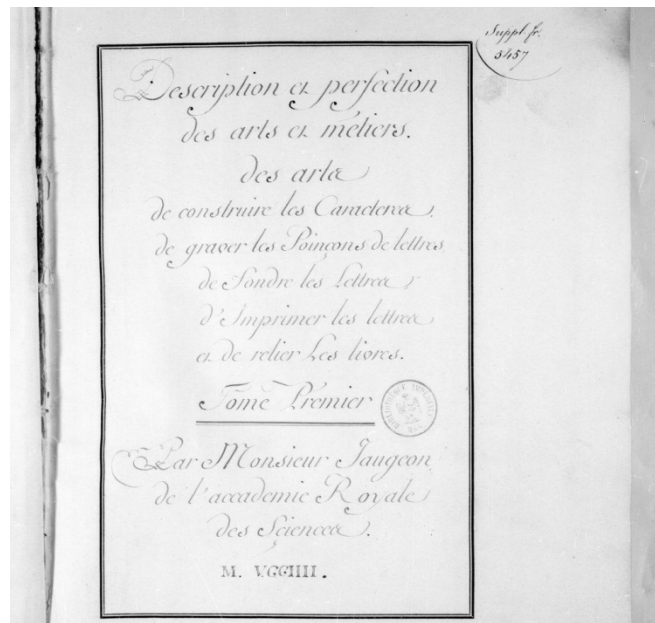 Suppl. fr.
5457
Description et perfection
des arts et métiers.
des arts
de construire les Caracteres,
de graver les Poinçons de lettres,
de Fondre les Lettres,
d'Imprimer les lettres
et de relier Les livres.
Tome Premier
BIBLIOTHEQUE IMPERIALE
Par Monsieur Jaugeon
de l'accademie Royale
des Sciences.
M. VCCIIII.